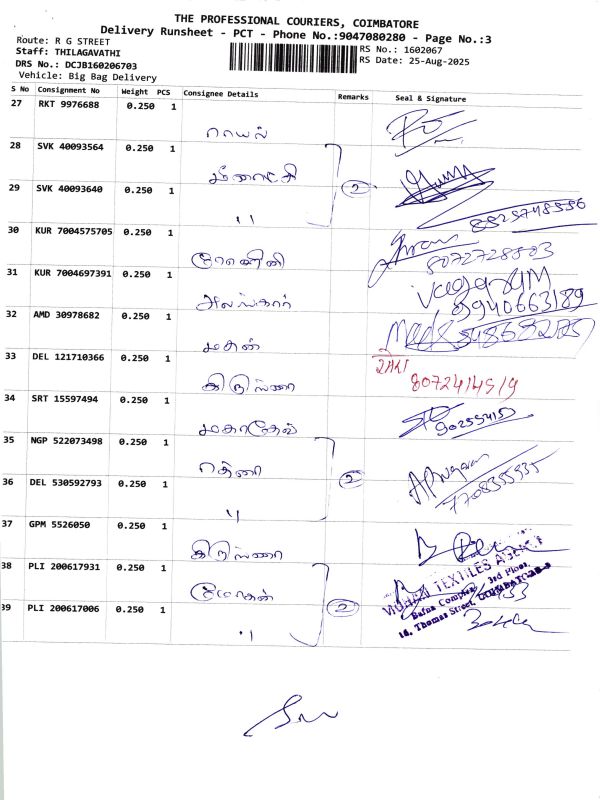 THE PROFESSIONAL COURIERS, COIMBATORE
Delivery Runsheet - PCT - Phone No.:9047080280 - Page No.:3
Route: R G STREET
RS No.: 1602067
Staff: THILAGAVATHI
RS Date: 25-Aug-2025
DRS No.: DCJB160206703
Vehicle: Big Bag Delivery
S No Consignment No Weight PCS Consignee Details Remarks Seal & Signature
27 RKT 9976688 0.250 1
ராயல்
28 SVK 40093564 0.250 1
மீனாட்சி
29 SVK 40093640 0.250 1 2
"
30 KUR 7004575705 0.250 1
8072728803
31 KUR 7004697391 0.250 1
அலங்கார்
9940663189
32 AMD 30978682 0.250 1
மதன்
33 DEL 121710366 0.250 1
கிருஷ்ணா
34 SRT 15597494 0.250 1
மகாதேவ்
35 NGP 522073498 0.250 1
ரத்னா
36 DEL 530592793 0.250 1 2
"
7708355935
37 GPM 5526050 0.250 1
கிருஷ்ணா
38 PLI 200617931 0.250 1
மோகன்
MOHAN TEXTILES AGENCY
Bafna Complex, 3rd Floor,
16, Thomas Street, COIMBATORE
39 PLI 200617006 0.250 1 2
"